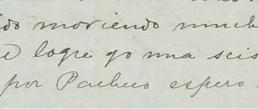 do moriendo much
logre yo una seis
por Pacheco espero